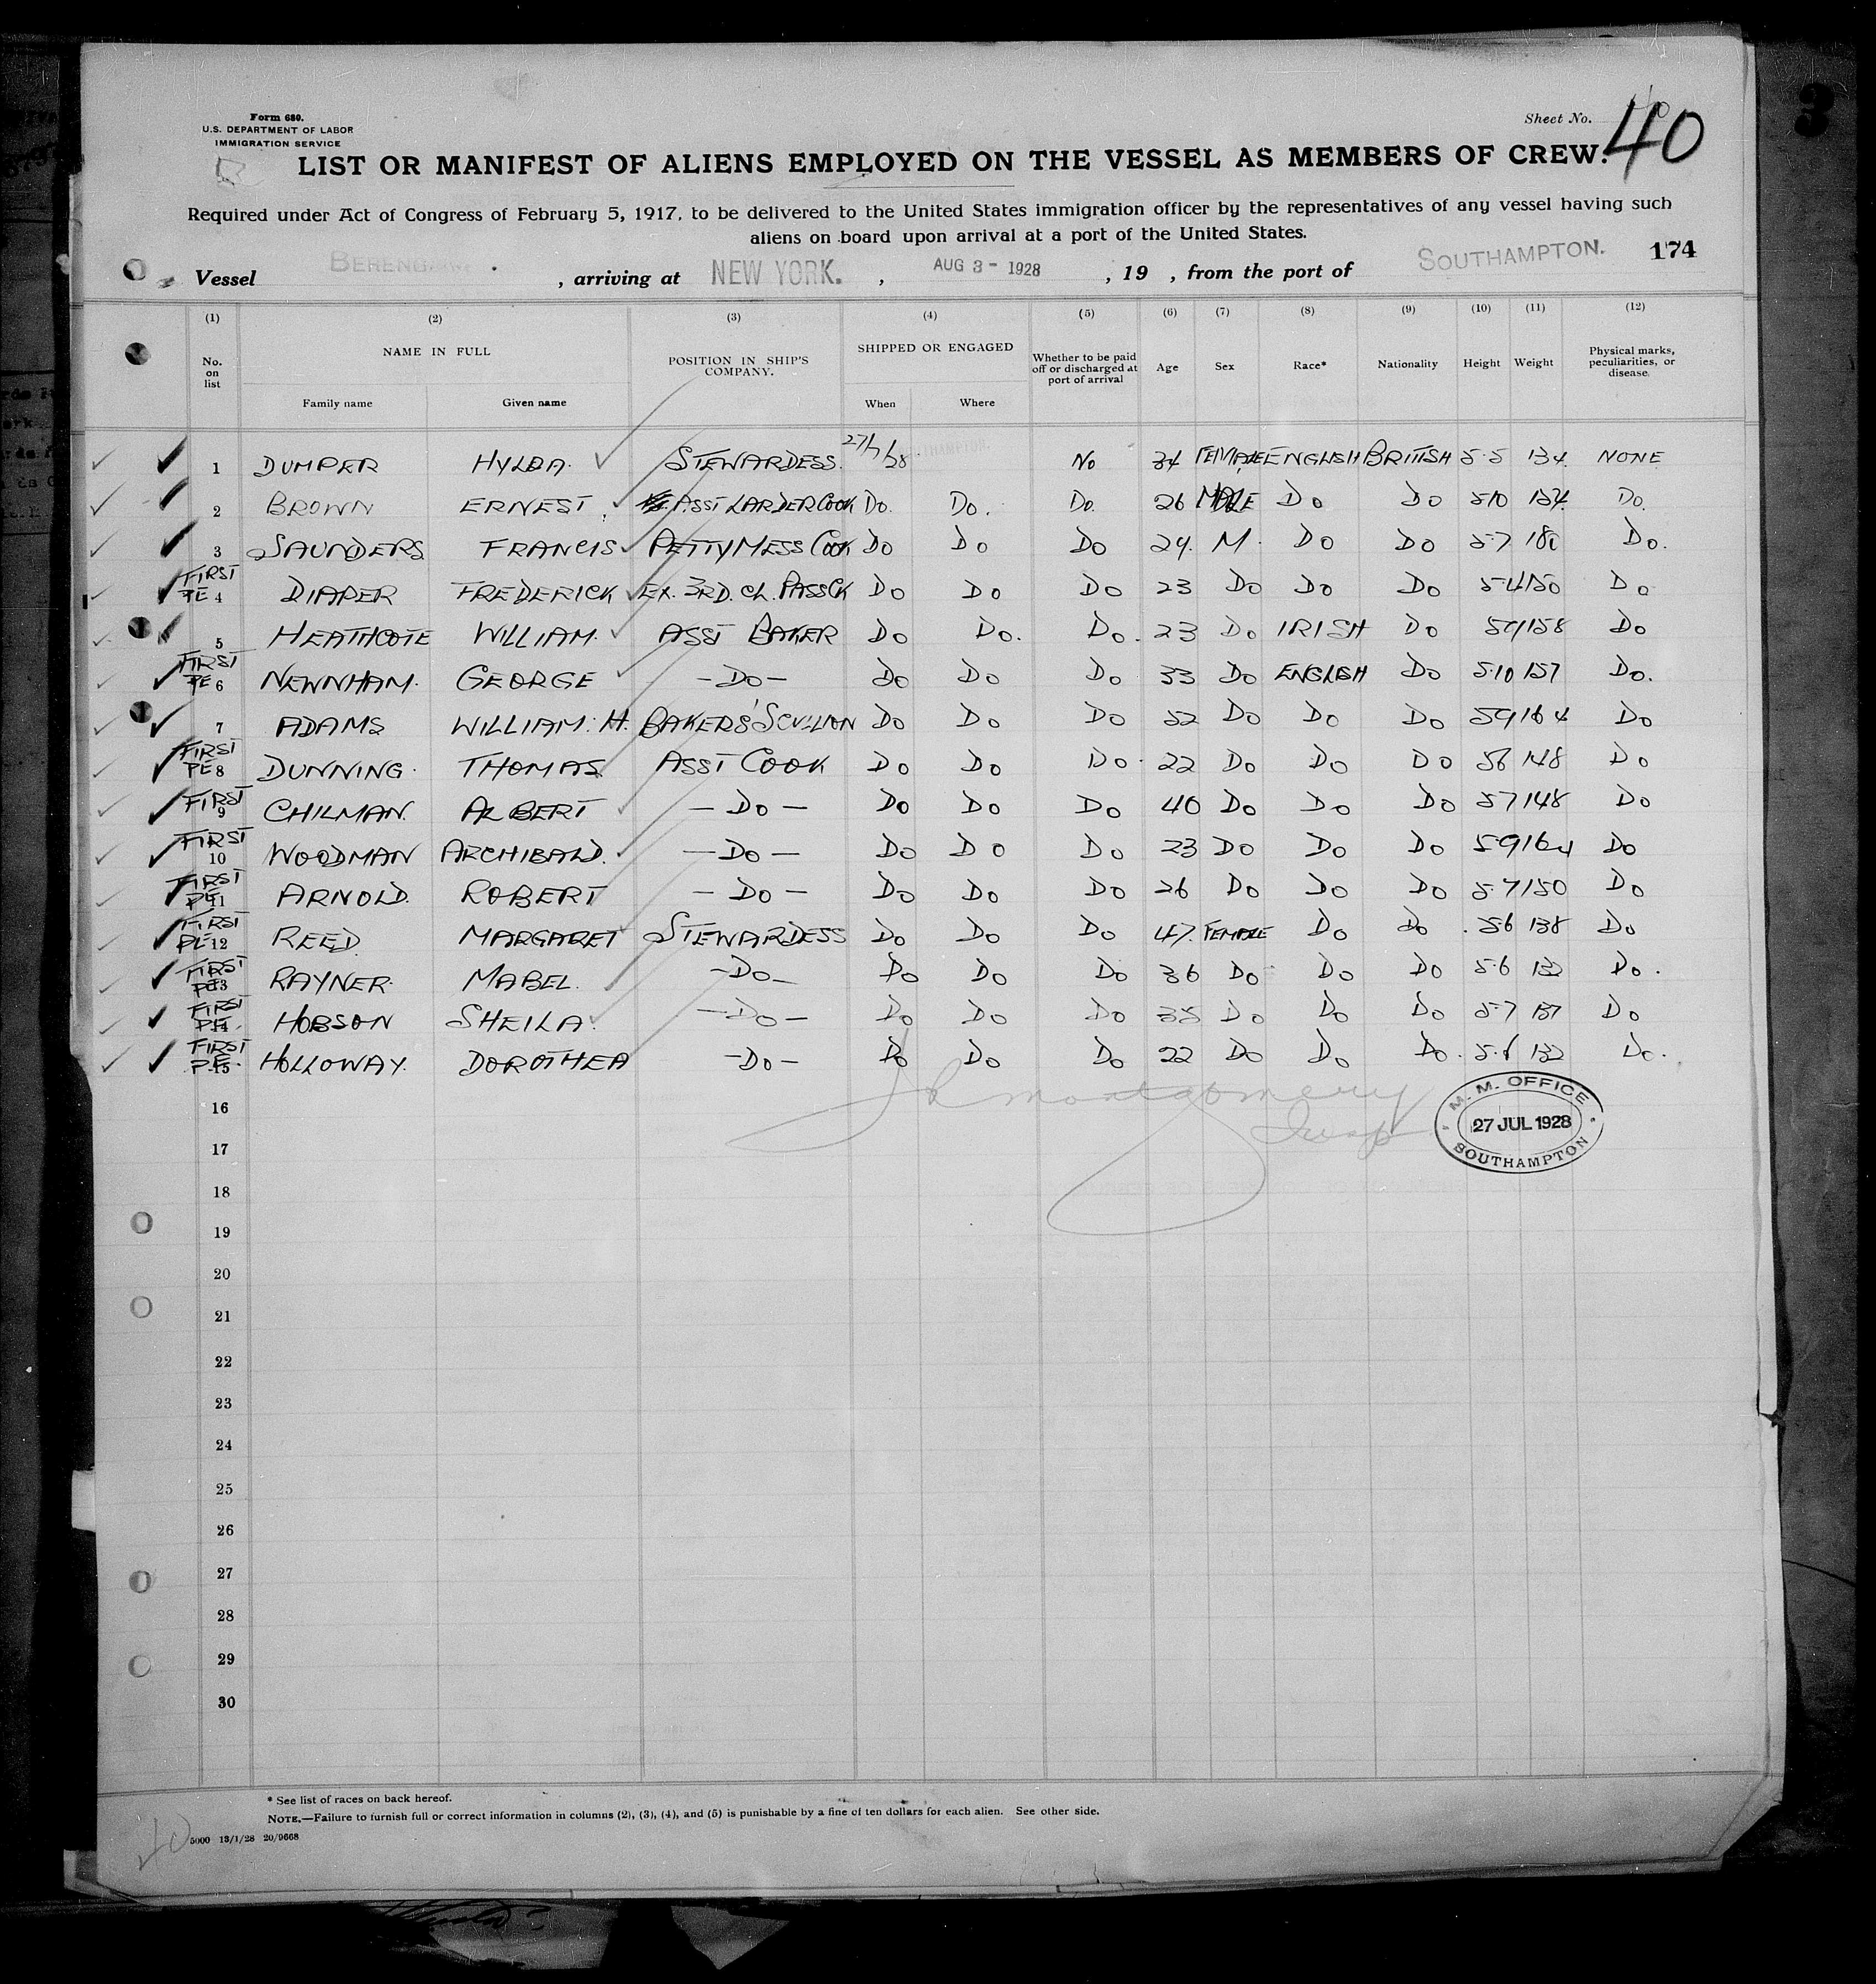 Form 680.
U.S. DEPARTMENT OF LABOR
IMMIGRATION SERVICE
Sheet No. 40
LIST OR MANIFEST OF ALIENS EMPLOYED ON THE VESSEL AS MEMBERS OF CREW.
Required under Act of Congress of February 5, 1917, to be delivered to the United States immigration officer by the representatives of any vessel having such
aliens on board upon arrival at a port of the United States.
174
Vessel , arriving at NEW YORK. , AUG 3 - 1928 , 19 , from the port of SOUTHAMPTON.
(1) (2) (3) (4) (5) (6) (7) (8) (9) (10) (11) (12)
No. on list NAME IN FULL POSITION IN SHIP'S COMPANY. SHIPPED OR ENGAGED Whether to be paid off or discharged at port of arrival Age Sex Race* Nationality Height Weight Physical marks, peculiarities, or disease.
Family name Given name When Where
1 DUMPER HYLDA. STEWARDESS. 27/7/28 No 34 FEMALE ENGLISH BRITISH 5.5 134 NONE
2 BROWN ERNEST. ASST LARDER COOK Do. Do. Do. 26 MALE Do Do 5.10 154 Do.
3 SAUNDERS FRANCIS PETTY MESS COOK Do Do Do 24. M. Do Do 5.7 180 Do.
FIRST PE 4 DIAPER FREDERICK EX. 3RD. CL. PASS CK Do Do Do 23 Do Do Do 5.4 150 Do
5 HEATHCOTE WILLIAM. ASST BAKER Do Do. Do. 23 Do IRISH Do 59 158 Do
FIRST PE 6 NEWNHAM. GEORGE -Do- Do Do Do 33 Do ENGLISH Do 5.10 157 Do.
7 ADAMS WILLIAM: H. BAKERS' SCULLION Do Do Do 52 Do Do Do 59 164 Do
FIRST PE 8 DUNNING. THOMAS ASST COOK Do Do Do. 22 Do Do Do 56 148 Do
FIRST 9 CHILMAN. ALBERT - Do - Do Do Do 40 Do Do Do 57 148 Do
FIRST 10 WOODMAN ARCHIBALD. - Do - Do Do Do 23 Do Do Do 5.9 164 Do
FIRST PE 11 ARNOLD. ROBERT - Do - Do Do Do 26 Do Do Do 5.7 150 Do
FIRST PE 12 REED. MARGARET STEWARDESS Do Do Do 47. FEMALE Do Do 5.6 138 Do
FIRST PE 13 RAYNER. MABEL. -Do- Do Do Do 36 Do Do Do 5.6 132 Do.
FIRST PE 14 HOBSON SHEILA. -Do- Do Do Do 35 Do Do Do 5.7 137 Do
FIRST PE 15 HOLLOWAY. DOROTHEA -Do- Do Do Do 22 Do Do Do. 5.6 132 Do.
Montgomery
Insp
M. M. OFFICE
27 JUL 1928
SOUTHAMPTON
16
17
18
19
20
21
22
23
24
25
26
27
28
29
30
* See list of races on back hereof.
NOTE.—Failure to furnish full or correct information in columns (2), (3), (4), and (5) is punishable by a fine of ten dollars for each alien. See other side.
5000 13/1/28 20/9668
40